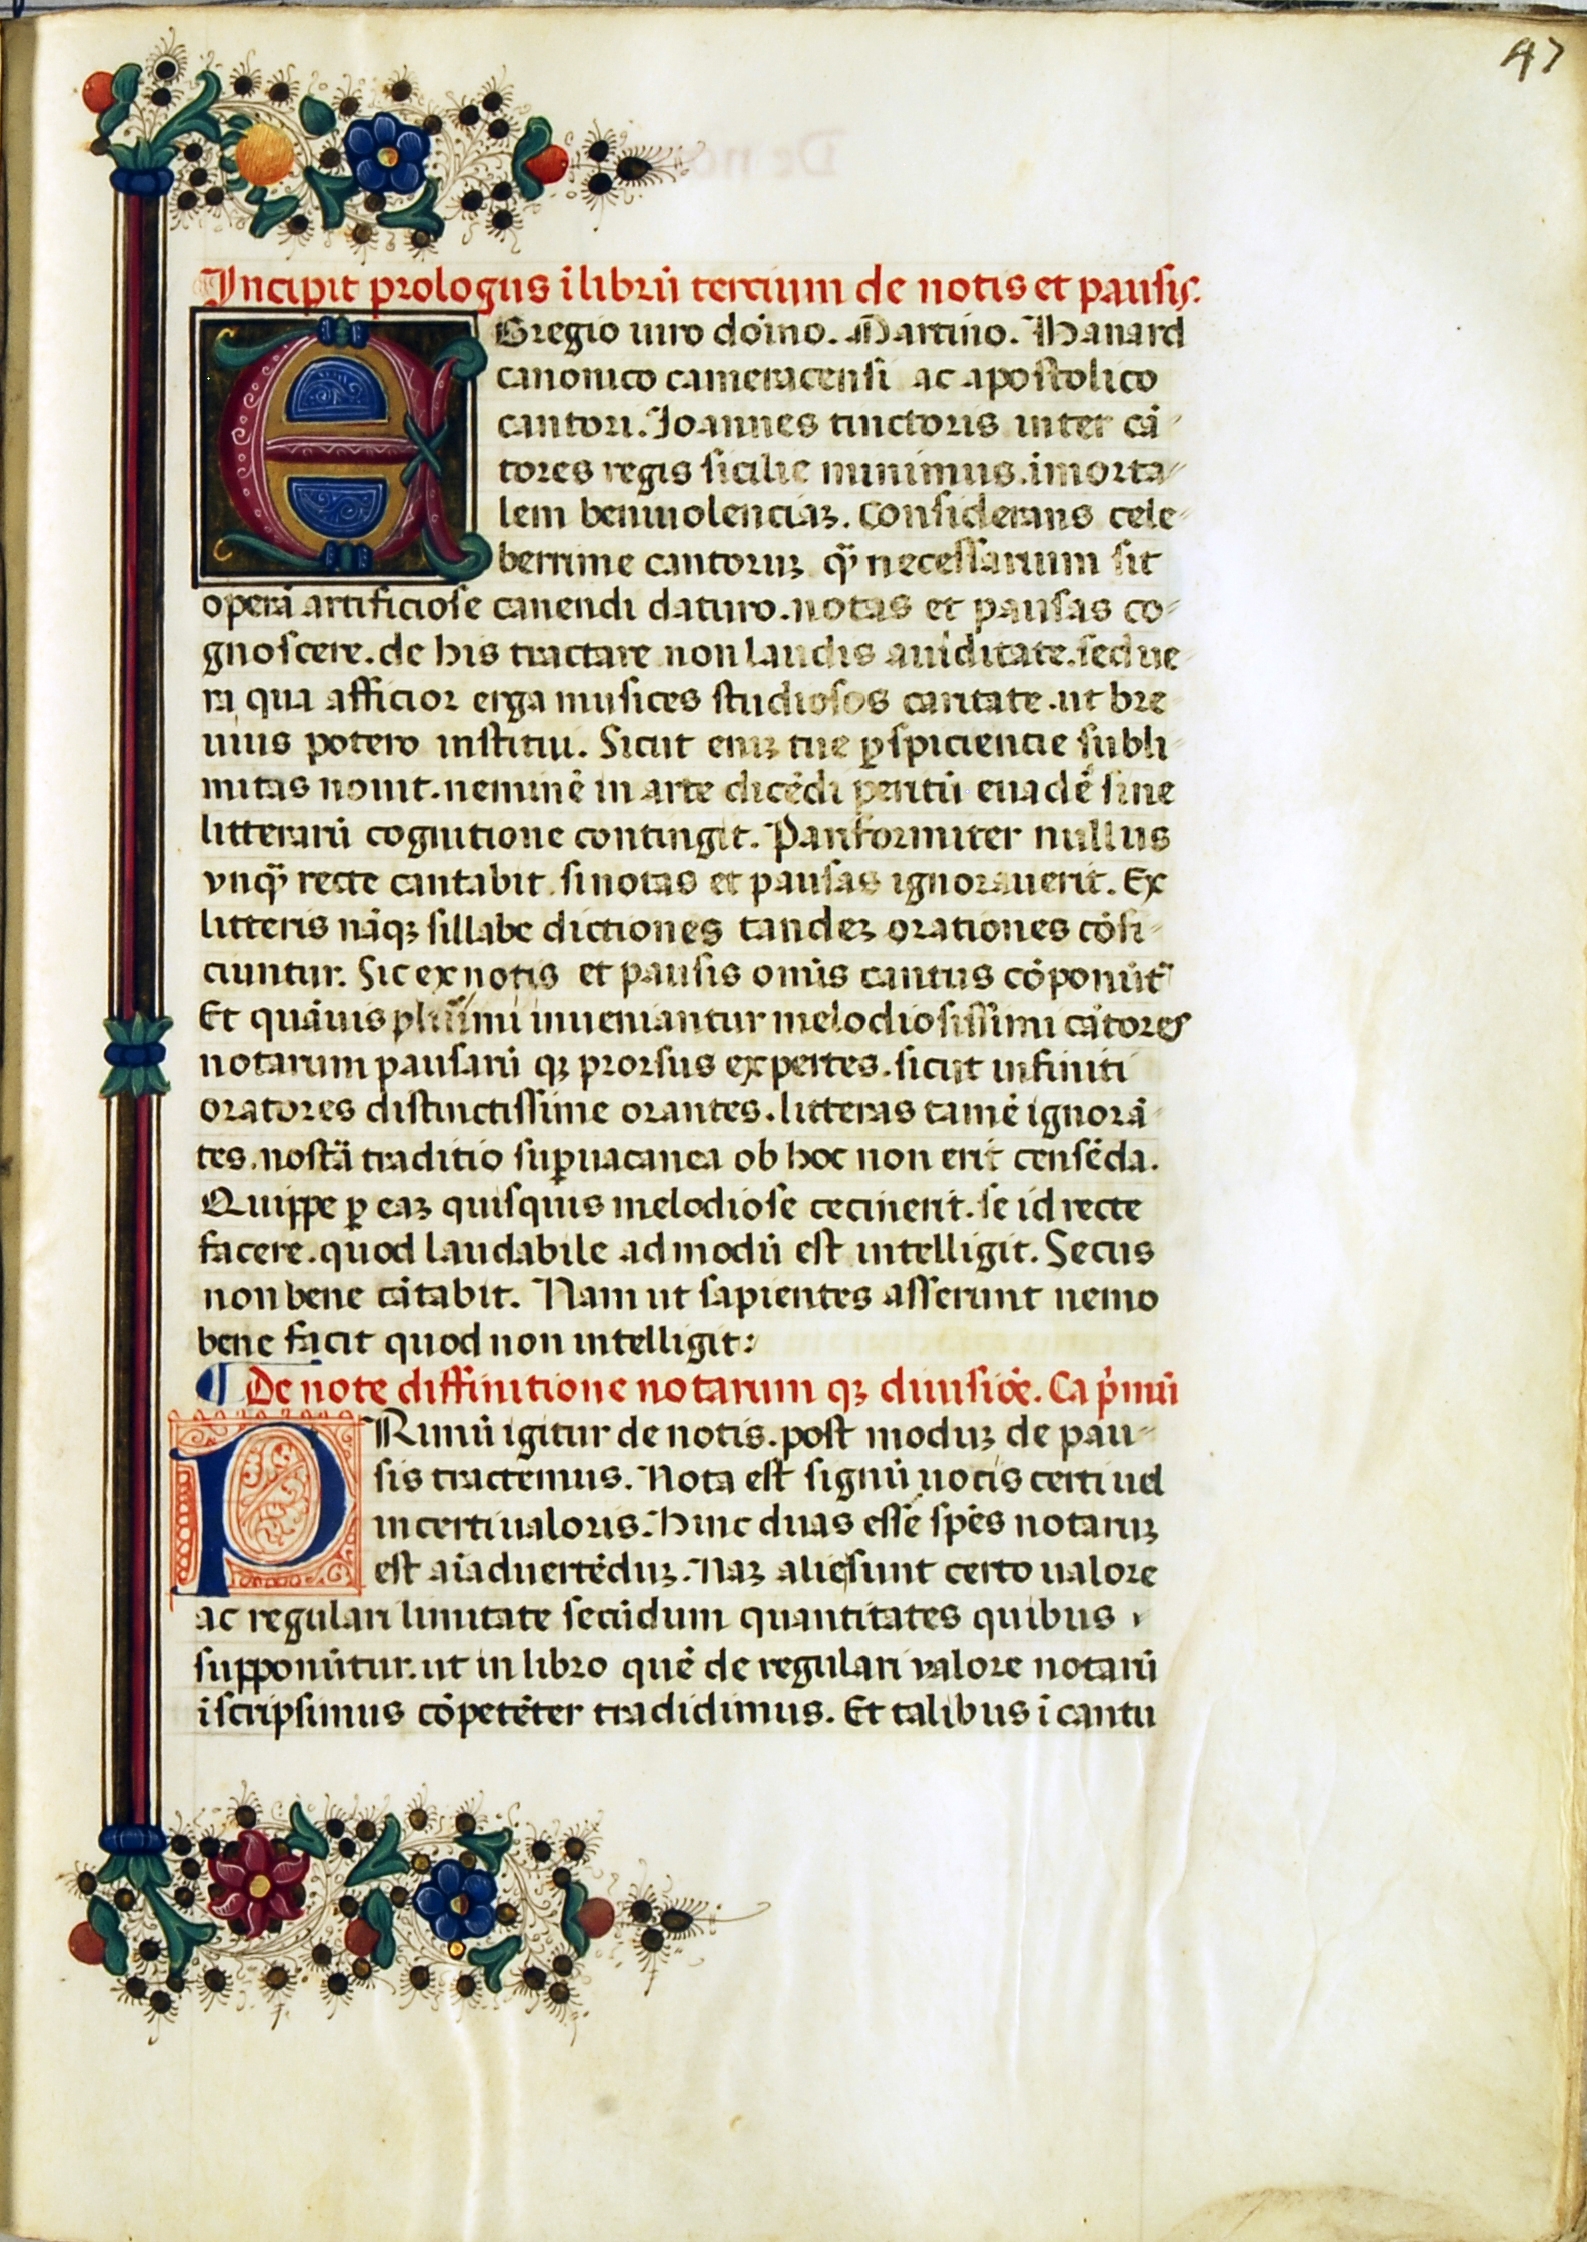 47
Incipit prologus ī librū tertium de notis et pausis.
EGregio uiro domino. Martino. Hanard
canonico cameracensi ac apostolico
cantori. Joannes tinctoris inter cā-
tores regis sicilie minimus. imorta-
lem beniuolenciaꝫ. Considerans cele-
berrime cantoruꝫ qͣꝫ necessarium sit
operā artificiose canendi daturo. notas et pausas co-
gnoscere. de his tractare non laudis auiditate. sed ue
ra qua afficior erga musices studiosos caritate. ut bre
uius potero institui. Sicut eniꝫ tue ꝑspiciencie subli-
mitas nouit. neminē in arte dicēdi peritū euadē sine
litterarū cognitione contingit. Pariformiter nullus
vnqͣꝫ recte cantabit. si notas et pausas ignorauerit. Ex
litteris nāqꝫ sillabe dictiones tandeꝫ orationes cōfi-
ciuntur. Sic ex notis et pausis omīs cantus cōponūt᷑
Et quāuis plurīmi inueniantur melodiosissimi cātores
notarum pausarū qꝫ prorsus expertes. sicut infiniti
oratores distinctissime orantes. litteras tamē ignorā-
tes. nostrā traditio suꝑuacanea ob hoc non erit censēda.
Quippe ꝑ eaꝫ quisquis melodiose cecinerit. se id recte
facere. quod laudabile admodū est intelligit. Secus
non bene cātabit. Nam ut sapientes asserunt nemo
bene facit quod non intelligit:
¶ De note diffinitione notarum qꝫ diuisiōe. Ca pͥmū
PRimū igitur de notis. post moduꝫ de pau-
sis tractemus. Nota est signū uocis certi uel
incerti ualoris. Hinc duas esse spēs notaruꝫ
est aīaduertēduꝫ. Naꝫ alie sunt certo ualore
ac regulari limitate secūdum quantitates quibus
supponūtur. ut in libro quē de regulari valore notarū
īscripsimus cōpetēter tradidimus. Et talibus ī cantu